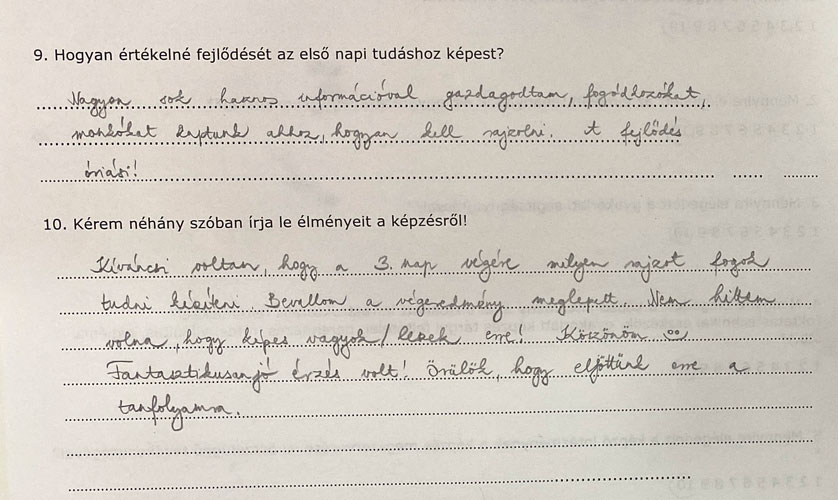 9. Hogyan értékelné fejlődését az első napi tudáshoz képest?
Nagyon sok hasznos információval gazdagodtam, fogódzókat,
mankókat kaptunk ahhoz, hogyan kell rajzolni. A fejlődés
óriási!
10. Kérem néhány szóban írja le élményeit a képzésről!
Kíváncsi voltam, hogy a 3. nap végére milyen rajzot fogok
tudni készíteni. Bevallom a végeredmény meglepett. Nem hittem
volna, hogy képes vagyok/leszek erre! Köszönöm
Fantasztikusan jó érzés volt! Örülök, hogy eljöttünk erre a
tanfolyamra.